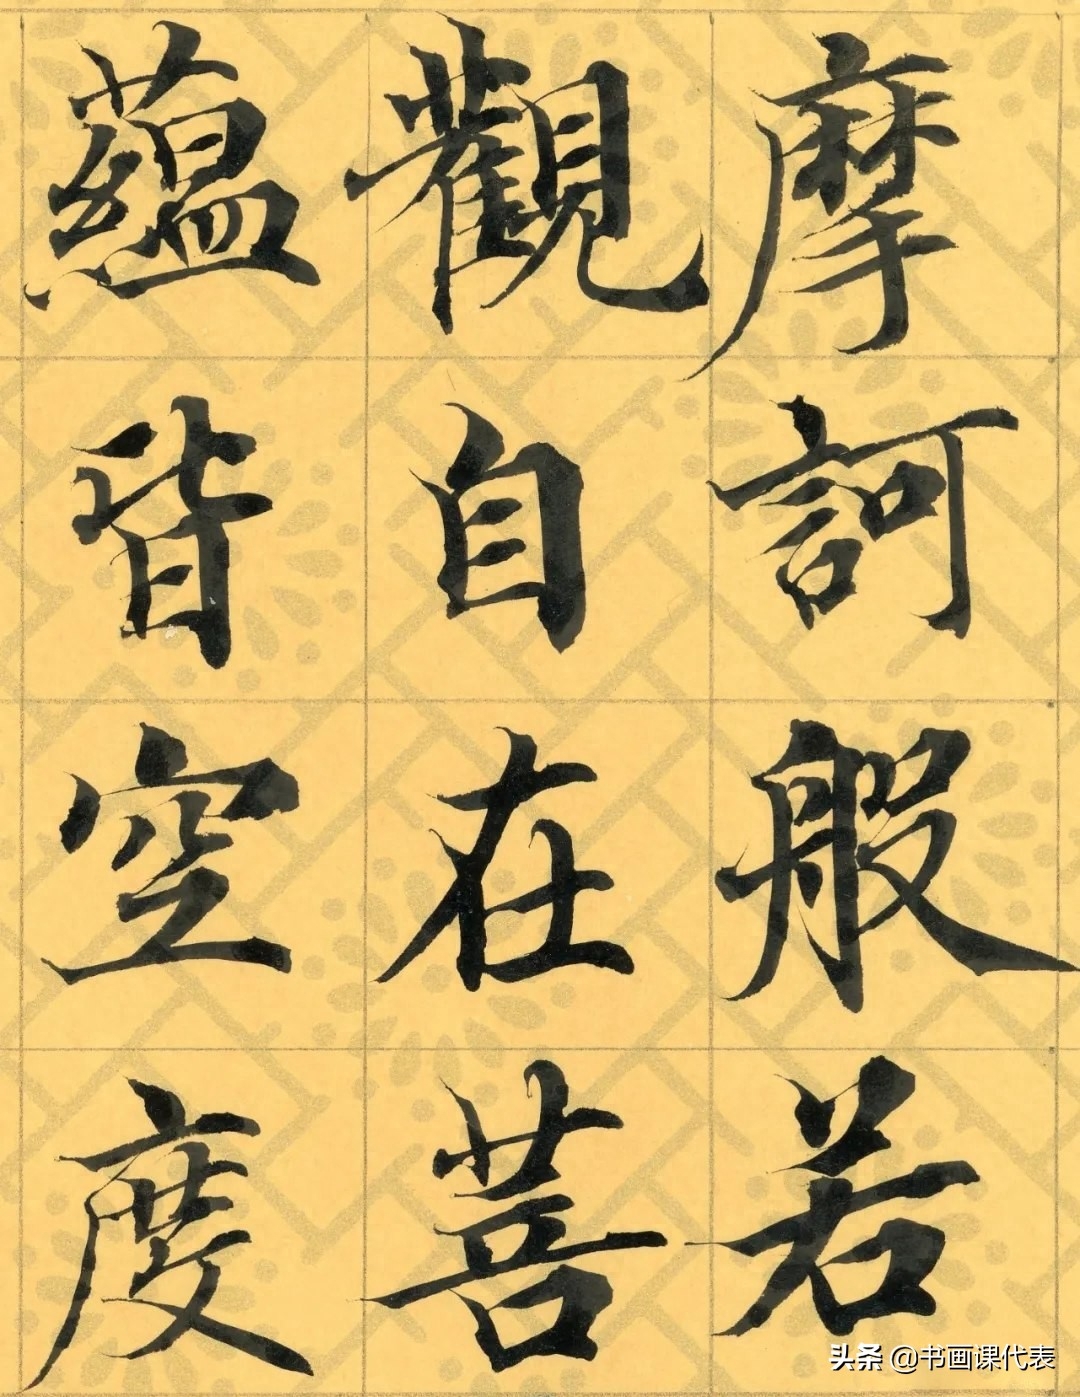 摩訶般若
觀自在菩
蘊皆空度
头条 @书画课代表